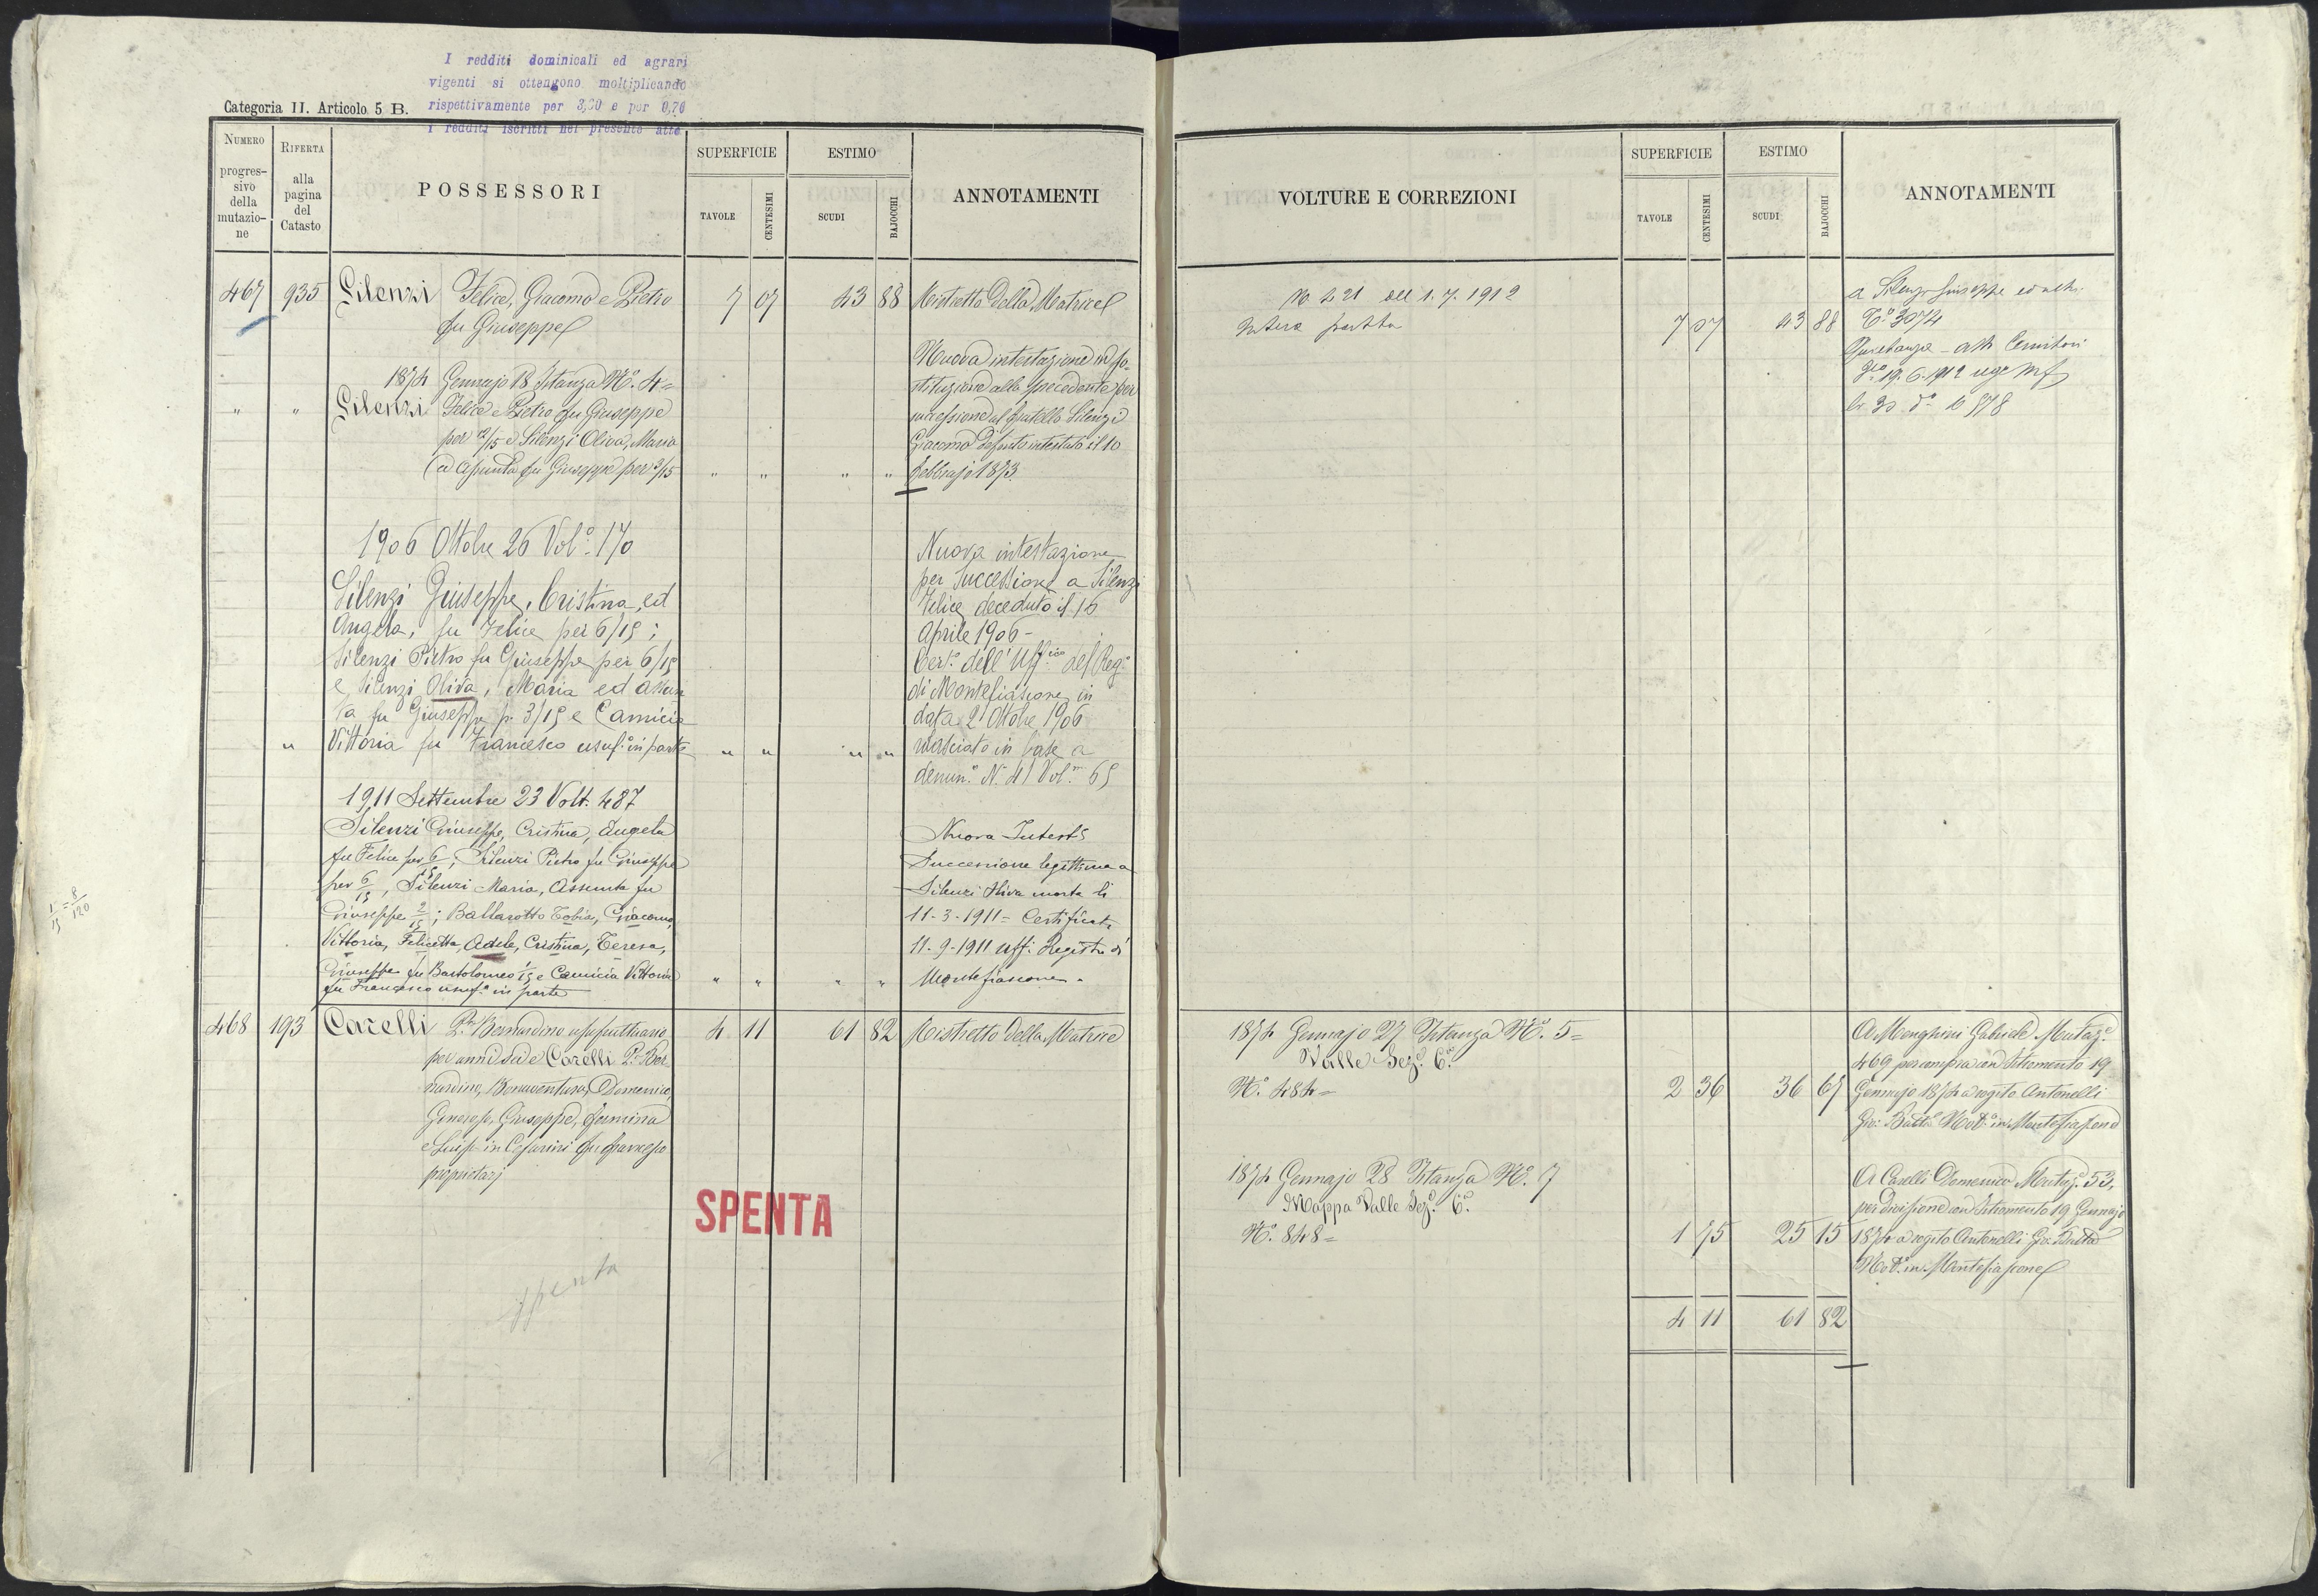 I redditi dominicali ed agrari
vigenti si ottengono moltiplicando
rispettivamente per 3,00 e per 0,70
i redditi iscritti nel presente atto
Categoria II. Articolo 5 B.
NUMERO progres- sivo della mutazio- ne
RIFERTA alla pagina del Catasto
POSSESSORI
SUPERFICIE
TAVOLE
CENTESIMI
ESTIMO
SCUDI
BAJOCCHI
ANNOTAMENTI
467 935 Silenzi Felice, Giacomo e Pietro 7 07 43 88 Ristretto della Matrice
fu Giuseppe
1874 Gennajo 18 Istanza N.º 4=
" " Silenzi Felice e Pietro fu Giuseppe
per 12/15 e Silenzi Oliva, Maria
ed Assunta fu Giuseppe per 3/15 " " " "
Nuova intestazione in so-
stituzione alla precedente per
successione al fratello Silenzi
Giacomo defunto intestato il 10
Febbrajo 1873.
1906 Ottobre 26 Vol.º 170
Silenzi Giuseppe, Cristina, ed
Angela, fu Felice per 6/15;
Silenzi Pietro fu Giuseppe per 6/15
e Silenzi Oliva, Maria ed Assun
ta fu Giuseppe p. 3/15 e Camicia
" Vittoria fu Francesco usuf.º in parte " " " "
Nuova intestazione
per successione a Silenzi
Felice deceduto il 16
Aprile 1906-
Cert.º dell'Uff.cio del Reg.º
di Montefiascone in
data 2 Ottobre 1906
rilasciato in base a
denun.ª N. 41 Vol.º 65
1911 Settembre 23 Volt. 487
Silenzi Giuseppe, Cristina, Angela
fu Felice per 6/15; Silenzi Pietro fu Giuseppe
per 6/15, Silenzi Maria, Assunta fu
Giuseppe 2/15; Ballarotto Tobia, Giacomo,
Vittoria, Felicetta, Adele, Cristina, Teresa,
Giuseppe fu Bartolomeo 1/15 e Camicia Vittoria " " " "
fu Francesco usuf.ª in parte
1/15 = 8/120
Nuova Intest.
Successione legittima a
Silenzi Oliva morta li
11-3-1911= Certificato
11-9-1911 Uff. Registro di
Montefiascone.
468 193 Carelli P.re Bernardino usufruttuario 4 11 61 82 Ristretto della Matrice
per anni sei e Carelli P.re Ber
nardino, Bonaventura, Domenico,
Generosa, Giuseppe, Fermina
e Luisa in Cesarini fu Francesco
proprietarj
SPENTA
spenta
VOLTURE E CORREZIONI
SUPERFICIE
TAVOLE
CENTESIMI
ESTIMO
SCUDI
BAJOCCHI
ANNOTAMENTI
No 421 del 1.7.1912
Intera partita 7 07 43 88
a Silenzi Giuseppe ed altri
3074
19.6.1912
1874 Gennajo 27 Istanza N.º 5=
Valle Sez.º 6.ª
N.º 484= 2 36 36 67
A Menghini Gabriele Mutaz.º
469 per compra con Istromento 19
Gennajo 1874 a rogito Antonelli
Gio: Batta Not.º in Montefiascone
1874 Gennajo 28 Istanza N.º 7
Mappa Valle Sez.º 6.ª
N.º 848= 1 75 25 15
A Carelli Domenico Mutaz.º 53,
per divisione con Istromento 19 Gennajo
1874 a rogito Antonelli Gio: Batta
Not.º in Montefiascone
4 11 61 82